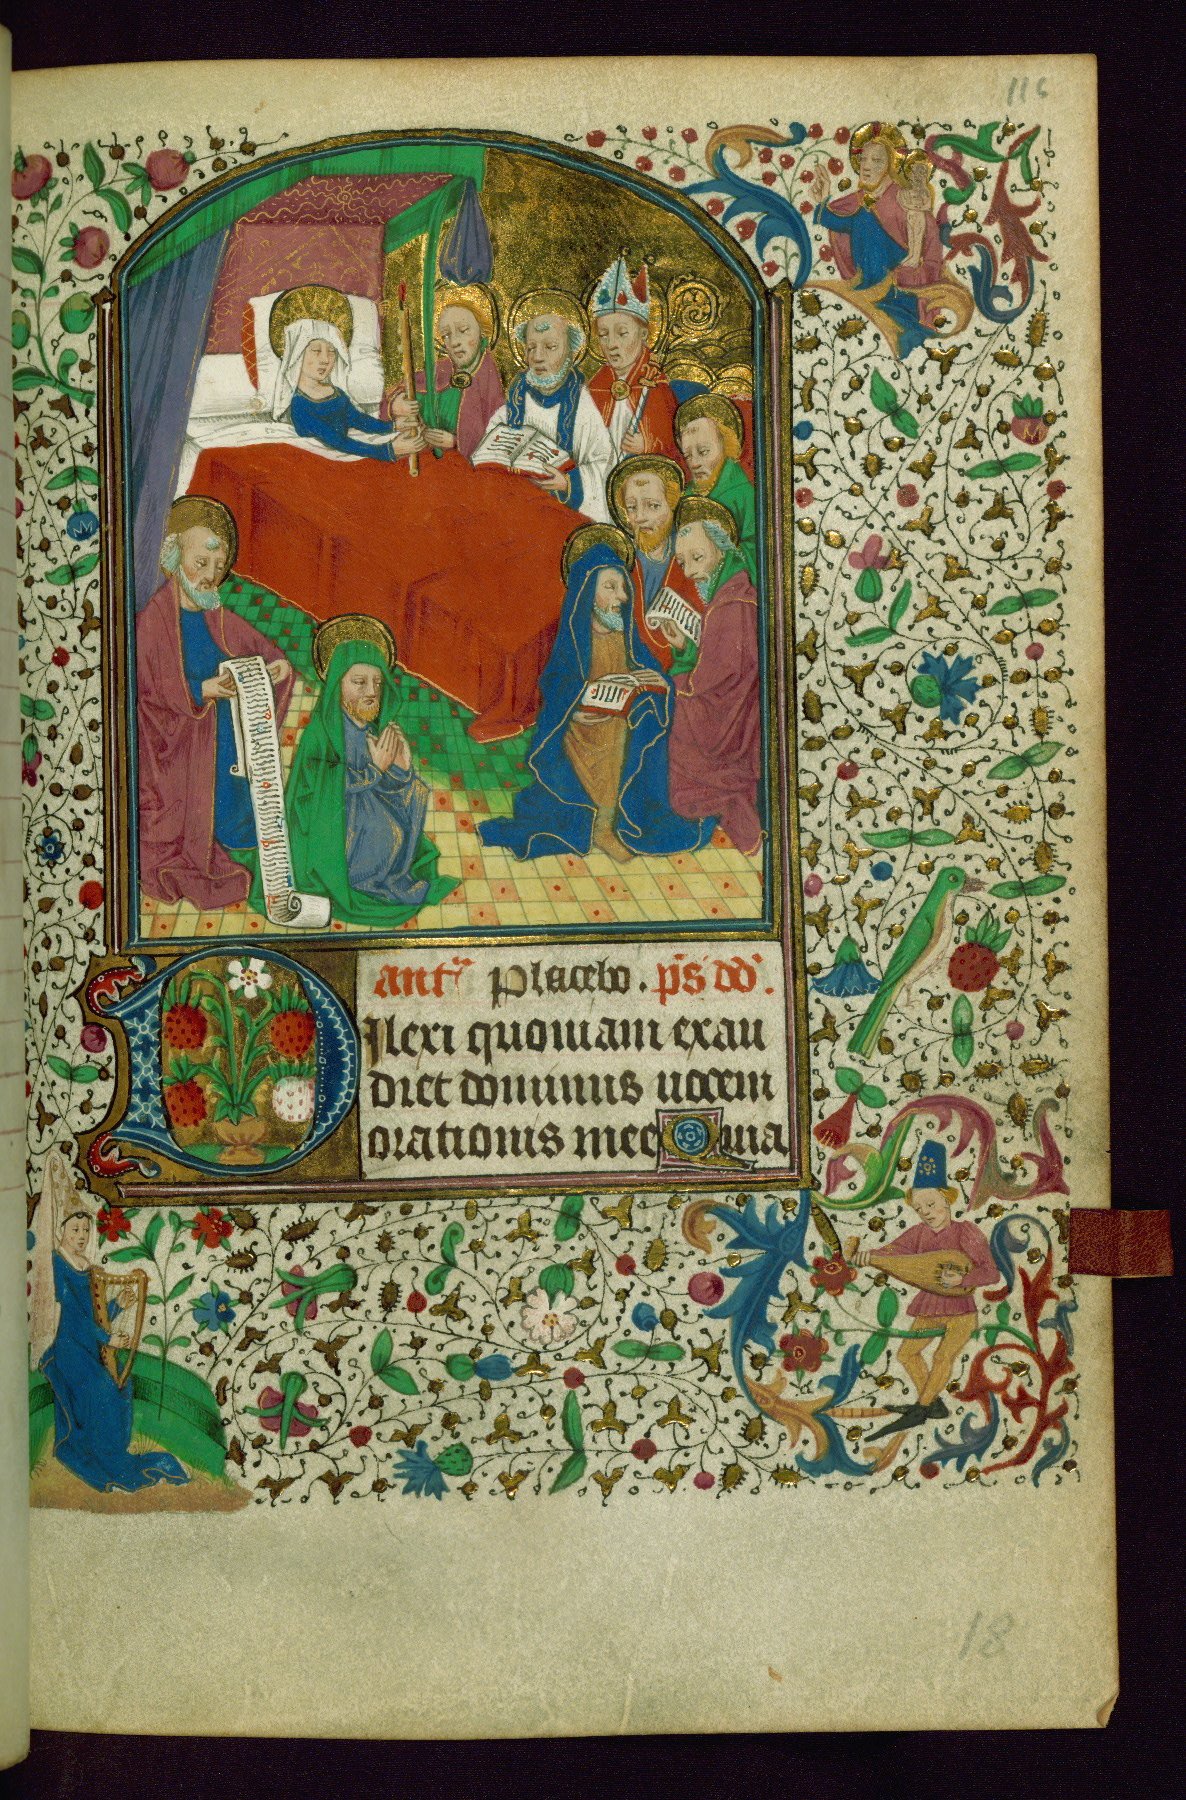 116
antᵉ̄ Placebo. p̄s dd̄.
Dilexi quoniam exau
diet dominus uocem
orationis mee Quia
18